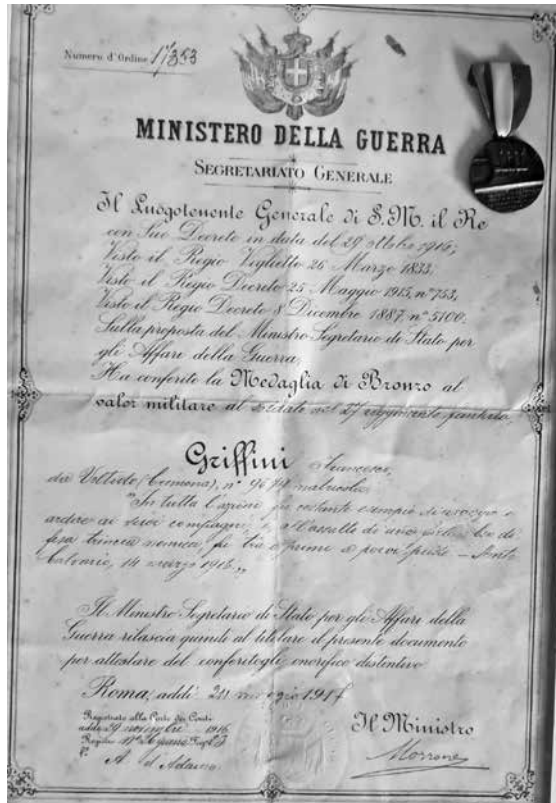 Numero d'Ordine 17353
MINISTERO DELLA GUERRA
SEGRETARIATO GENERALE
Il Luogotenente Generale di S.M. il Re
con Suo Decreto in data del 29 ottobre 1916;
Visto il Regio Viglietto 26 Marzo 1833;
Visto il Regio Decreto 25 Maggio 1915, n° 753;
Visto il Regio Decreto 8 Dicembre 1887, n° 5100;
Sulla proposta del Ministro Segretario di Stato per
gli Affari della Guerra;
Ha conferito la Medaglia di Bronzo al
valor militare al soldato nel 27 reggimento fanteria
Griffini Francesco,
da (Cremona), n° matricola
"In tutta l'azione fu costante esempio di coraggio e
ardire ai suoi compagni e, all'assalto di una
trincea nemica, fu tra i primi a porvi piede –
Calvario, 14 marzo 1916.„
Il Ministro Segretario di Stato per gli Affari della
Guerra rilascia quindi al titolare il presente documento
per attestare del conferitogli onorifico distintivo
Roma, addì 24 maggio 1917
Registrato alla Corte dei Conti
addì 29 novembre 1916
Registro
Il Ministro
Morrone